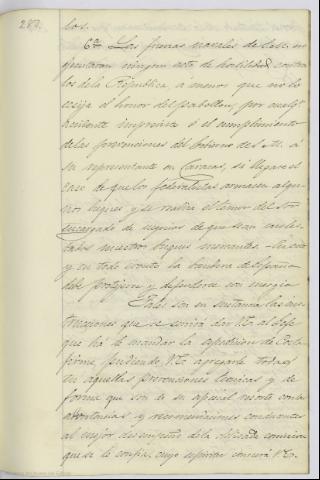 282.
los.
6ª Las fuerzas navales de S.M. no
ejecutaran ningun acto de hostilidad contra
los de la República, á menos que no lo
exija el honor del pabellon, por cualq.r
incidente imprevisto ó el cumplimiento
de las prevenciones del Gobierno de S.M. á
su representante en Caracas, si llegare el
caso de que los federalistas armasen algu-
nos buques y se realice el temor del Sor
encargado de negocios de que sean
tados nuestros buques mercantes.
y en todo evento la bandera de España
debe protejerse y defenderse con energia
Tales son en sustancia las ins-
trucciones que se servirá dar V.E. al Jefe
que há de mandar la espedicion de Costa
firme, pudiendo V.E. agregarle todas
en aquellas prevenciones tecnicas y de
forme que son de su especial
advertencias y recomendaciones conducentes
al mejor desempeño de la delicada comision
que se le confia, cuyo superior V.E.